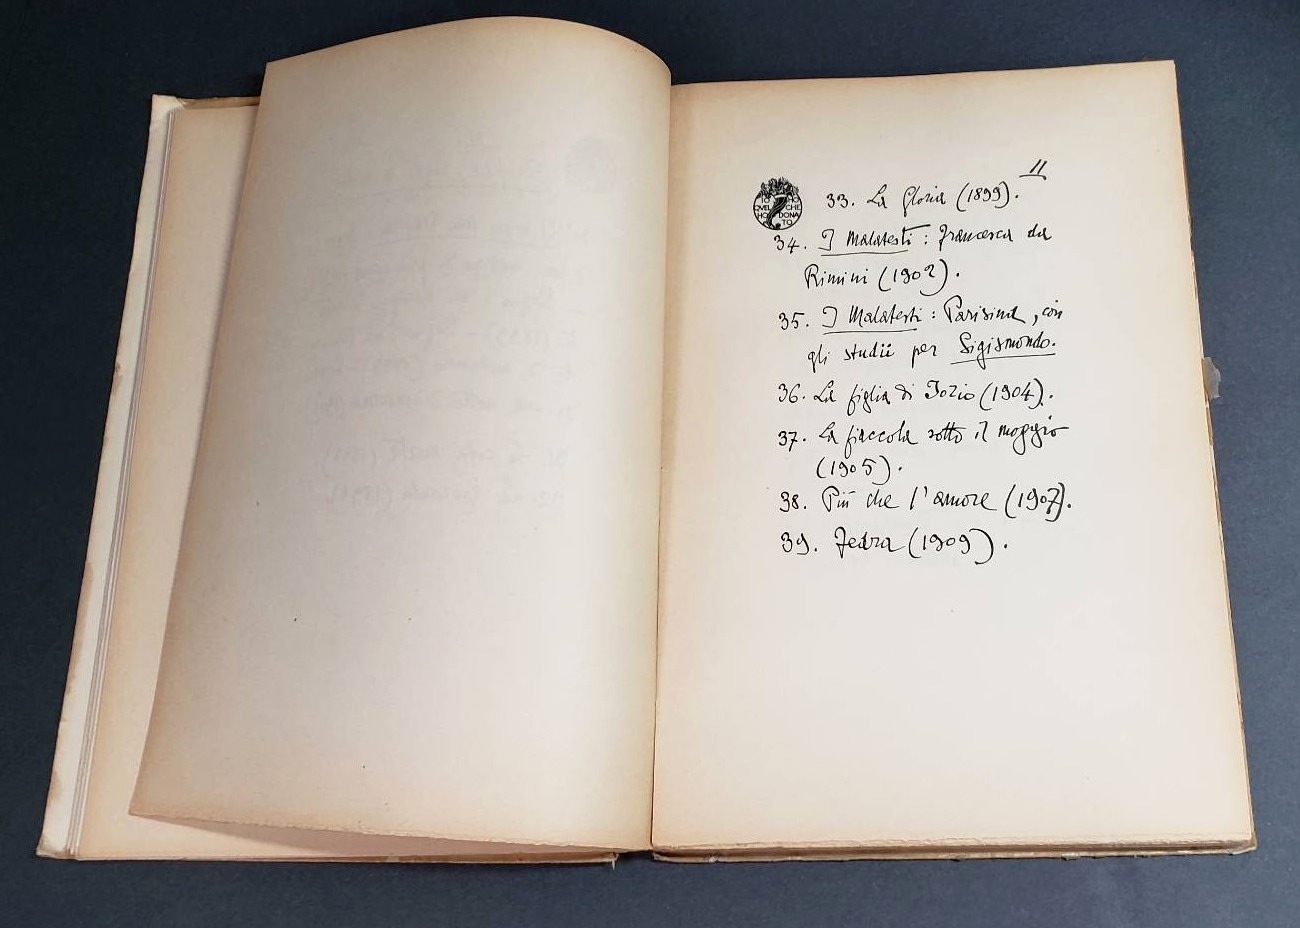 11
IO HO
QVEL CHE
HO DONA
TO
33. La Gloria (1899).
34. I Malatesti : Francesca da
Rimini (1902).
35. I Malatesti : Parisina, con
gli studii per Sigismondo.
36. La figlia di Iorio (1904).
37. La fiaccola sotto il moggio
(1905).
38. Più che l'amore (1907).
39. Fedra (1909).